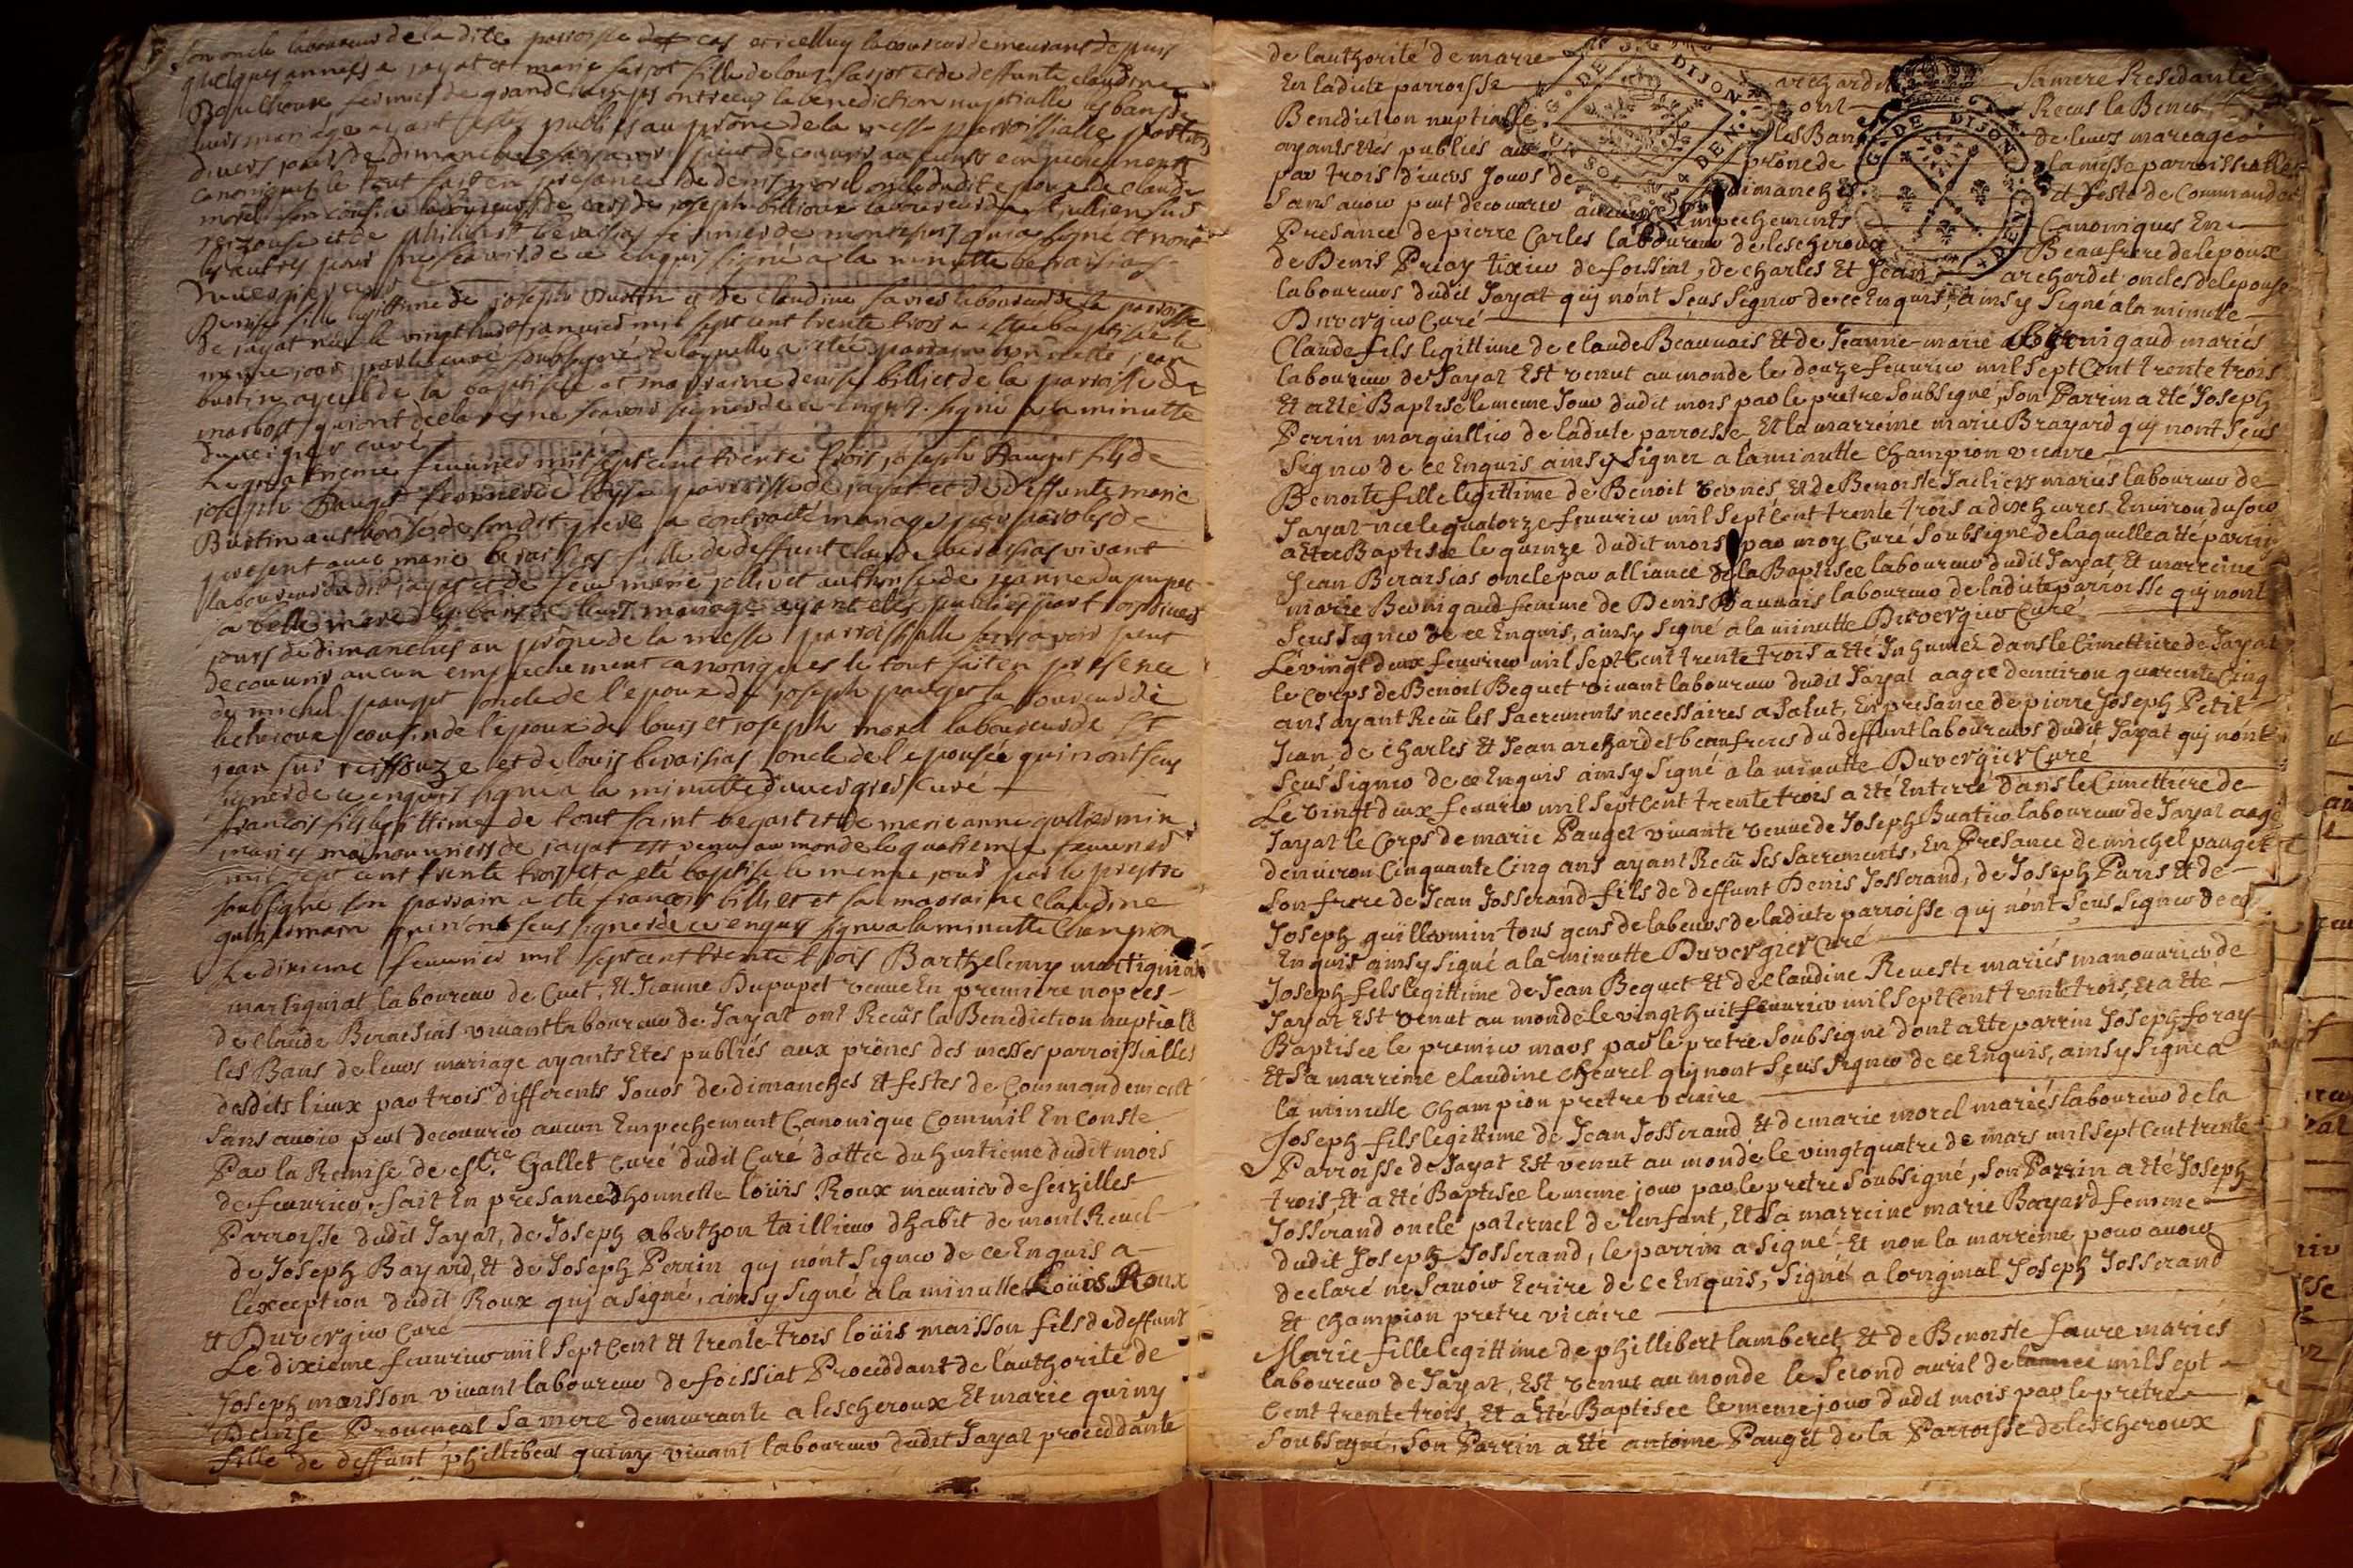 son oncle laboureur de la dite parroisse de cras et icelluy laboureur demeurant depuis
quelques années a jayat et marie farjot fille de louis farjot et de deffunte claudine
fermier de grandchamps ont receu la benediction nuptialle les bans de
leurs mariage ayant estes publiés au prône de la messe parroissialle par trois
divers jours de dimanches sans avoir peut decouvrir aucuns empechements
canoniques le tout fait en presance de denis morel oncle dudit epoux de claude
morel son cousin laboureurs de cras de joseph billioux laboureur de st jullien sur
reizouse et de philibert beraisias fermier de montsimon qui a signé et non
les autres pour ne scavoir de ce enquis signé a la minutte beraisias
duvergier curé
Denise fille legittime de joseph Bustin et de claudine laboureurs de la parroisse
de jayat née le vingt huit janvier mil sept cent trente trois a estée baptisée le
meme jour par le curé soubsigné de laquelle a etée parrain jean
bustin ayeul de la baptisée et marraine denise billiet de la parroisse de
marboz qui ont declaré ne scavoir signer de ce enquis signé a la minutte
duvergier curé
Le quatrieme feuvrier mil sept cent trente trois joseph Pauget fils de
joseph Pauget fermier de parroisse de jayat et de deffunte marie
Bustin authorisé de sondit pere a contracté mariage par parolles de
present avec marie beraisias fille de deffunt claude beraisias vivant
laboureur dudit jayat et de feue marie jollivet authorisée de jeanne dupupet
sa belle mere les bans de leurs mariage ayant estés publiés par trois divers
jours de dimanches au prone de la messe parroissialle sans avoir peut
decouvrir aucun empechement canoniques le tout fait en presence
de michel pauget oncle de l'epoux de joseph pauget laboureur de
lecheroux cousin de l'epoux de louis et joseph morel laboureur de St
jean sur reissouze et de louis beraisias oncle de l'epousée qui n'ont sceus
signer de ce enquis signé a la minutte duvergier curé
francois fils legittime de tout saint begart et de marie anne guilliermin
mariés manouvriers de jayat est venu au monde le quatrieme feuvrier
mil sept cent trente trois et a eté baptisé le meme jour par le prestre
soubsigné son parrain a eté francois billiet et sa marraine claudine
guilliermin qui n'ont sceus signer de ce enquis signé a la minutte Champion
Le dixieme feuvrier mil sept cent trente trois Barthelemy martigniat
martigniat laboureur de Cuet, Et Jeanne Dupupet veuve En premiere nopces
de Claude Beraisias vivant laboureur de Jayat ont Receus la Benediction nuptiale
les Bans de leurs mariage ayants Etes publiés aux prônes des messes parroissialles
desdits lieux par trois differents Jours de dimanches Et festes de Commandement
Sans avoir peut decouvrir aucun Empechement Canonique Comm'il En Conste
Par la Remise de Mre Gallet Curé dudit Curé dattée du huitieme dudit mois
de feuvrier. fait En presance d'honnette loüis Roux meunier de seizilles
Parroisse dudit Jayat, de Joseph aberthon taillieur d'habit de mont Revel
de Joseph Bayard, Et de Joseph Perrin qui n'ont Signer de ce Enquis a
l'exception dudit Roux qui a Signé, ainsy Signé a la minutte Loüis Roux
et Duvergier Curé
Le dixieme feuvrier mil Sept Cent Et trente trois loüis maisson fils de deffunt
Joseph maisson vivant laboureur de foissiat Procedant de l'authorité de
Denise Provencal Sa mere demeurante a lescheroux Et marie quiny
fille de deffunt phillibert quiny vivant laboureur dudit Jayat procedante
de lauthorité de marie archardet Sa mere Residante
En ladite parroisse ont Receus la Bene
Benediction nuptialle les Bans de leurs mareage
ayants Etés publiés au prône de la messe parroissialle
par trois divers Jours de dimanches et feste de Commandet
Sans avoir peut decouvrir aucuns Empechements Canoniques En
Presance de pierre Carles laboureur de lescheroux Beaufrere de lepoux
de Denis Preay tixier de foissiat, de Charles Et Jean archardet oncles de lepouse
laboureurs dudit Jayat qui n'ont Sceus Signer de ce Enquis, ainsy Signé a la minutte
Duvergier Curé
Claude fils legittime de Claude Beauvais Et de Jeanne-marie Bernigaud mariés
laboureur de Jayat Est venut au monde le douze feuvrier mil Sept Cent trente trois
Et a eté Baptisé le meme Jour dudit mois par le pretre Soubsigné, Son Parrin a eté Joseph
Perrin marguillier de ladite parroisse Et la marreine marie Brayard qui nont Sceus
Signer de ce Enquis ainsy Signer a la minutte Champion vicaire
Benoite fille legittime de Benoit Et de Benoiste mariés laboureur de
Jayat née le quatorze feuvrier mil Sept Cent trente trois a dix heures Environ du soir
a etée Baptisée le quinze dudit mois par moy Curé Soubsigné de laquelle a eté parrin
Jean Beraisias oncle par alliance de la Baptisée laboureur dudit Jayat Et marreine
marie Bernigaud femme de Denis Bauvais laboureur de ladite parroisse qui nont
Sceus Signer de ce Enquis, ainsy Signé a la minutte Duvergier Curé
Le vingt deux feuvrier mil Sept Cent trente trois a eté Inhumez dans le Cimettiere de Jayat
le Corps de Benoit Bequet vivant laboureur dudit Jayat aagee denviron quarente Cinq
ans ayant Receu les Sacrements necessaires a Salut, En presance de pierre Joseph Petit
Jean, de Charles Et Jean archardet beaufreres du deffunt laboureurs dudit Jayat qui n'ont
Sceus Signer de ce Enquis ainsy Signé a la minutte Duvergier Curé
Le vingt deux feuvrier mil Sept Cent trente trois a eté Enterré dans le Cimettiere de
Jayat le Corps de marie Pauget vivante veuve de Joseph Buatier laboureur de Jayat aagé
denviron Cinquante Cinq ans ayant Receu Ses Sacrements, En Presance de michel pauget
Son frere de Jean Josserand fils de deffunt Denis Josserand, de Joseph Paris Et de
Joseph guillermin tous gens de labeurs de ladite parroisse qui n'ont Sceus Signer de ce
Enquis ainsy Signé a la minutte Duvergier Curé
Joseph fils legittime de Jean Bequet Et de Claudine Reveste mariés manouvrier de
Jayat Est venut au monde le vingt huit feuvrier mil Sept Cent trente trois, Et a ete
Baptisée le premier mars par le pretre Soubsigné dont a ete parrin Joseph foray
Et Sa marreine Claudine Chevrel qui nont Sceus Signer de ce Enquis, ainsy Signé a
la minutte Champion pretre vicaire
Joseph fils legittime de Jean Josserand Et de marie morel mariés laboureur de la
Parroisse de Jayat Est venut au monde le vingt quatre de mars mil Sept Cent trente
trois, Et a eté Baptisée le meme jour par le pretre Soubsigné, Son Parrin a eté Joseph
Josserand oncle paternel de lenfant, Et Sa marreine marie Bayard femme
dudit Joseph Josserand, le parrin a Signé, Et non la marreine pour avoir
declaré ne Savoir Ecrire de ce Enquis, Signé a loriginal Joseph Josserand
Et Champion pretre vicaire
Marie fille legittime de phillibert lamberet, Et de Benoiste faure mariés
laboureur de Jayat, Est venut au monde le Second avril de lannee mil Sept
Cent trente trois, Et a eté Baptisée le meme jour dudit mois par le pretre
Soubsigné, Son Parrin a eté antoine Pauget de la Parroisse de lescheroux
G. DE DIJON
UN SOL 4 DEN.
G. DE DIJON